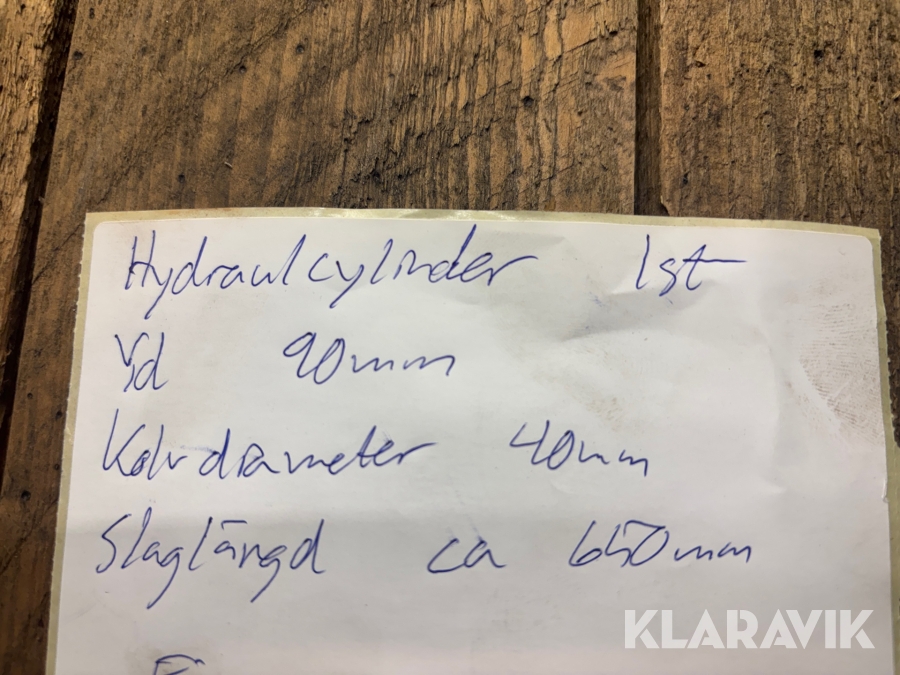 Hydraulcylinder 1st
Yd 90mm
Kolvdiameter 40mm
Slaglängd ca 650mm
KLARAVIK